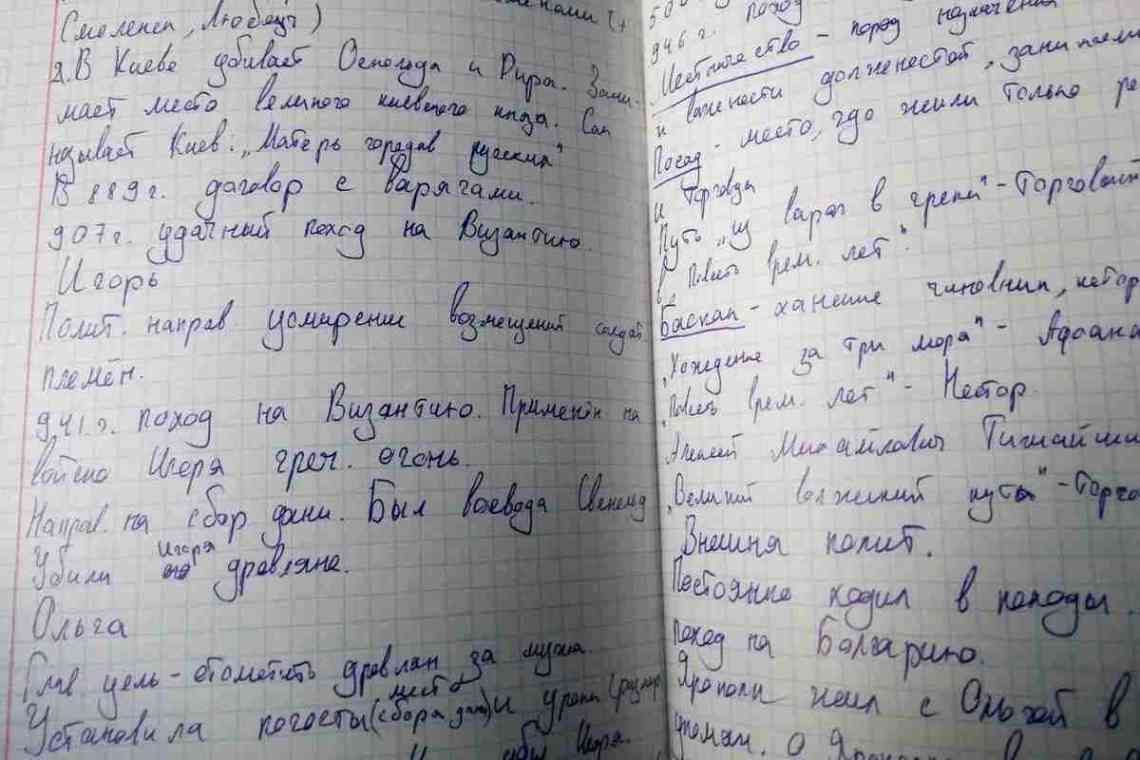 Смоленск, Любечь)
2. В Киеве убивает Оскольда и Дира. Зани-
мает место великого киевского князя. Сам
называет Киев: „Матерь городов русских"
В 889 г. договор с варягами.
907 г. удачный поход на Византию.
Игорь
Полит. направ усмирении возмещений
племён.
941 г. поход на Византию. Применён на
войско Игоря греч. огонь.
Направ. на сбор дани. Был воевода Свенельд
Убили Игоря древляне.
Ольга
Глав цель - отомстить древлян за мужа.
Установила погосты (место сбора дани) и уроки (размер
Игоря.
946 г. поход
Местничество - поряд назначения
и важности должностей, занимаем
Посад - место, где жили только ре
и торговцы
Путь „из варяг в греки" - Торговый
в Повесть врем. лет".
Баскак - ханские чиновник, котор
„Хождение за три моря" - Афана
„Повесть врем. лет" - Нестор.
Алексей Михайлович Тишайший
„Великий волжский путь" - Торго
Внешня полит.
Постоянно ходил в походы.
поход на Болгарию.
Ярополк жил с Ольгой в
упомян. о